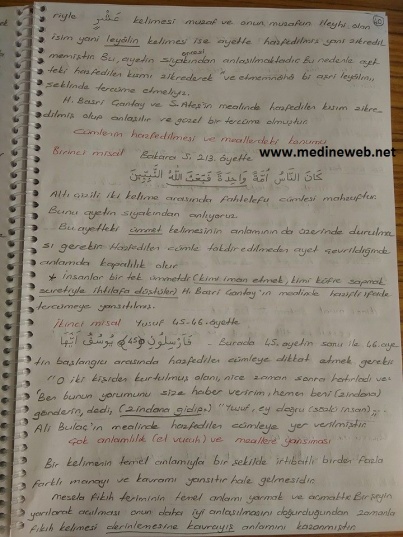 riyle عَشْرٍ kelimesi muzaf ve onun muzafun ileyhi olan
isim yani leyâlin kelimesi ise ayette hazfedilmiş yani zikredil
memiştir. Bu, ayetin siyakından anlaşılmaktadır. Bu nedenle ayet
teki hazfedilen kısmı zikrederek " ve etmemnâhâ bi aşri leyâlin,
şeklinde tercüme etmeliyiz.
H. Basri Çantay ve S. Ateş'in mealinde hazfedilen kısım zikre-
dilmiş olup anlaşılır ve güzel bir tercüme olmuştur.
Cümlenin hazfedilmesi ve meallerdeki konumu
www.medineweb.net
Birinci misal Bakara S. 213. âyette
كَانَ النَّاسُ أُمَّةً وَاحِدَةً فَبَعَثَ اللَّهُ النَّبِيِّينَ
Altı çizili iki kelime arasında fahtelefu cümlesi mahzuftur.
Bunu ayetin siyakından anlıyoruz.
Bu ayetteki ümmet kelimesinin anlamının da üzerinde durulma-
sı gerekir. Hazfedilen cümle takdir edilmeden ayet çevrildiğinde
anlamda kapalılık olur.
* İnsanlar bir tek ümmetdi (kimi iman etmek, kimi küfre sapmak
suretiyle ihtilafa düştüler) H. Basri Çantay'ın mealinde hazif ifade
tercümeye yansıtılmış.
İkinci misal Yusuf 45-46. ayette
فَأَرْسِلُونِ ﴿45﴾ يُوسُفُ أَيُّهَا - Burada 45. ayetin sonu ile 46. aye
tin başlangıcı arasında hazfedilen cümleye dikkat etmek gerekir
"O iki kişiden kurtulmuş olanı, nice zaman sonra hatırladı ve
"Ben bunun yorumunu size haber veririm, hemen beni (zindana)
gönderin, dedi, (zindana gidip) "Yusuf, ey doğru (sözlü insan)
Ali Bulaç'ın mealinde hazfedilen cümleye yer verilmiştir.
Çok anlamlılık (el vucuh) ve meallere yansıması
Bir kelimenin temel anlamıyla bir şekilde irtibatlı birden fazla
farklı manayı ve kavramı yansıtır hale gelmesidir.
Mesela fıkıh teriminin temel anlamı yarmak ve açmaktır. Bir şeyin
yarılarak açılması onun daha iyi anlaşılmasını doğurduğundan zamanla
fıkıh kelimesi derinlemesine kavrayış anlamını kazanmıştır.